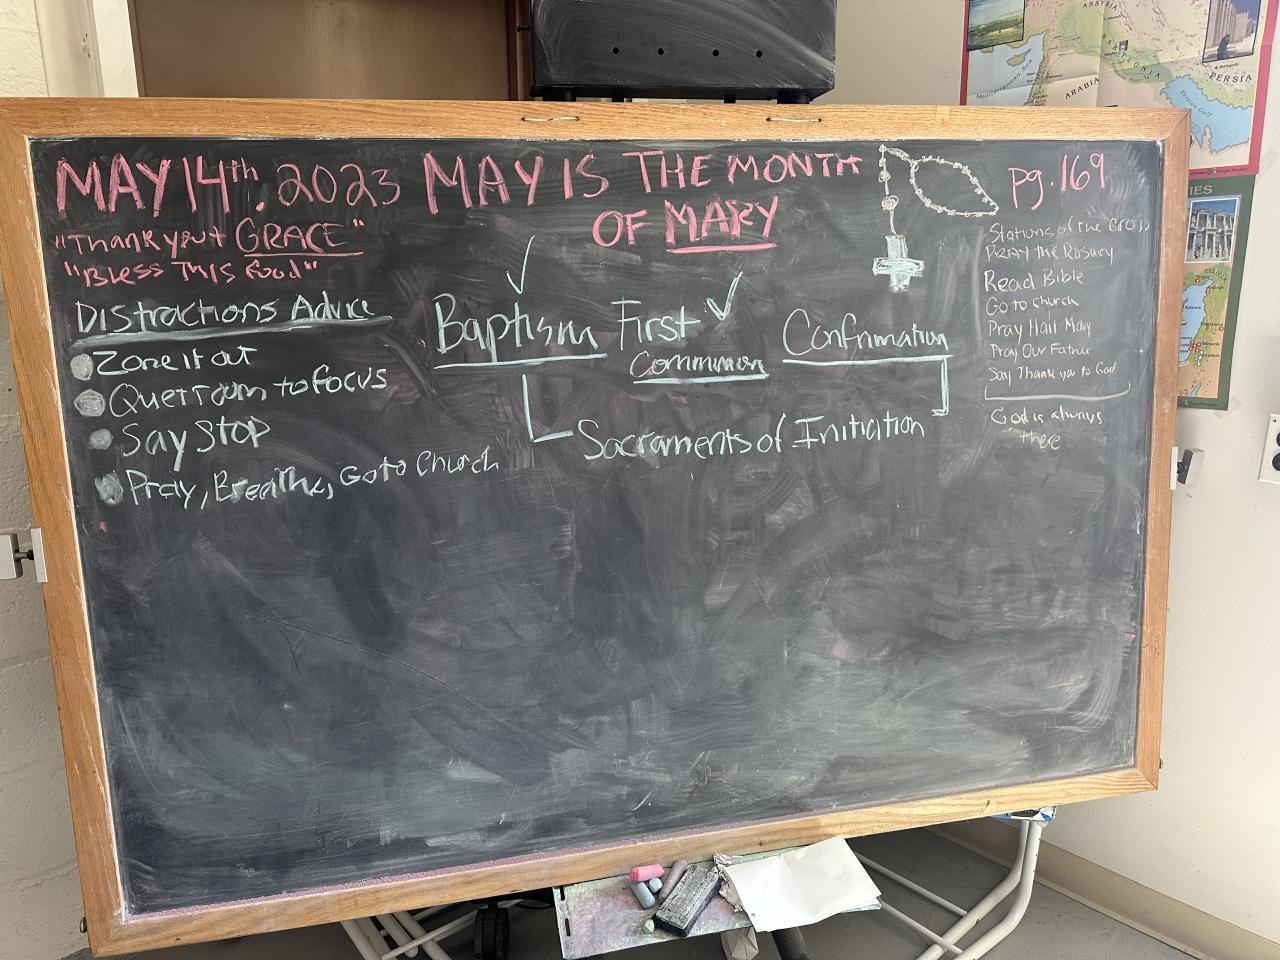 MAY 14th, 2023
MAY IS THE MONTH
OF MARY
pg. 169
"Thank you + GRACE"
"Bless This Food"
Distractions Advice
Zone it out
Quet room to focus
Say Stop
Pray, Breathe, Go to Church
Baptism
First
Commuion
Confrimation
Sacraments of Initiation
Stations of the Cross
PRAY the Rosary
Read Bible
Go to church
Pray Hail Mary
Pray Our Father
Say Thank you to God
God is always
there
ASSYRIA
BABYLONIA
PERSIA
ARABIA
Mediterranean Sea
Persian Gulf
CILICIA